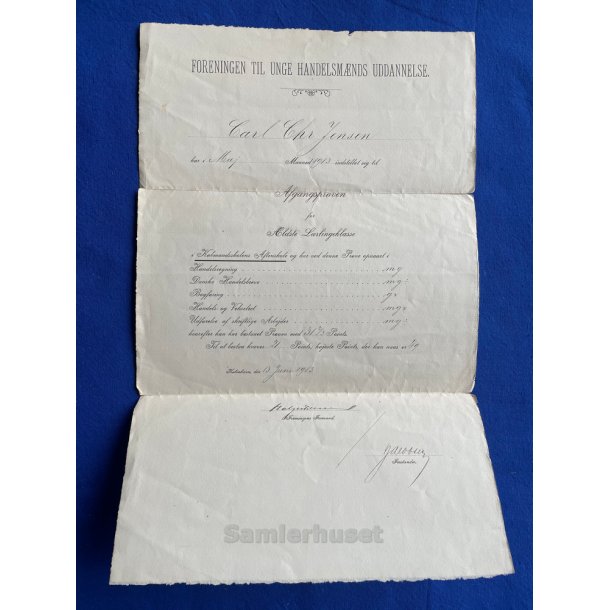 FORENINGEN TIL UNGE HANDELSMÆNDS UDDANNELSE.
Carl Chr Jensen
har i Maj Maaned 1913 indstillet sig til
Afgangsprøven
for
Ældste Lærlingeklasse
i Købmandsskolens Aftenskole og har ved denne Prøve opnaaet i
Handelsregning mg
Danske Handelsbreve mg
Bogføring
Handels- og Vekselret mg
Udførelse af skriftlige Arbejder mg
hvorefter han har bestaaet Prøven med Points.
Til at bestaa kræves 21 Points, højeste Points, der kan naas er
København, den 13 Juni 1913
Foreningens Formand.
Forstander.
Samlerhuset